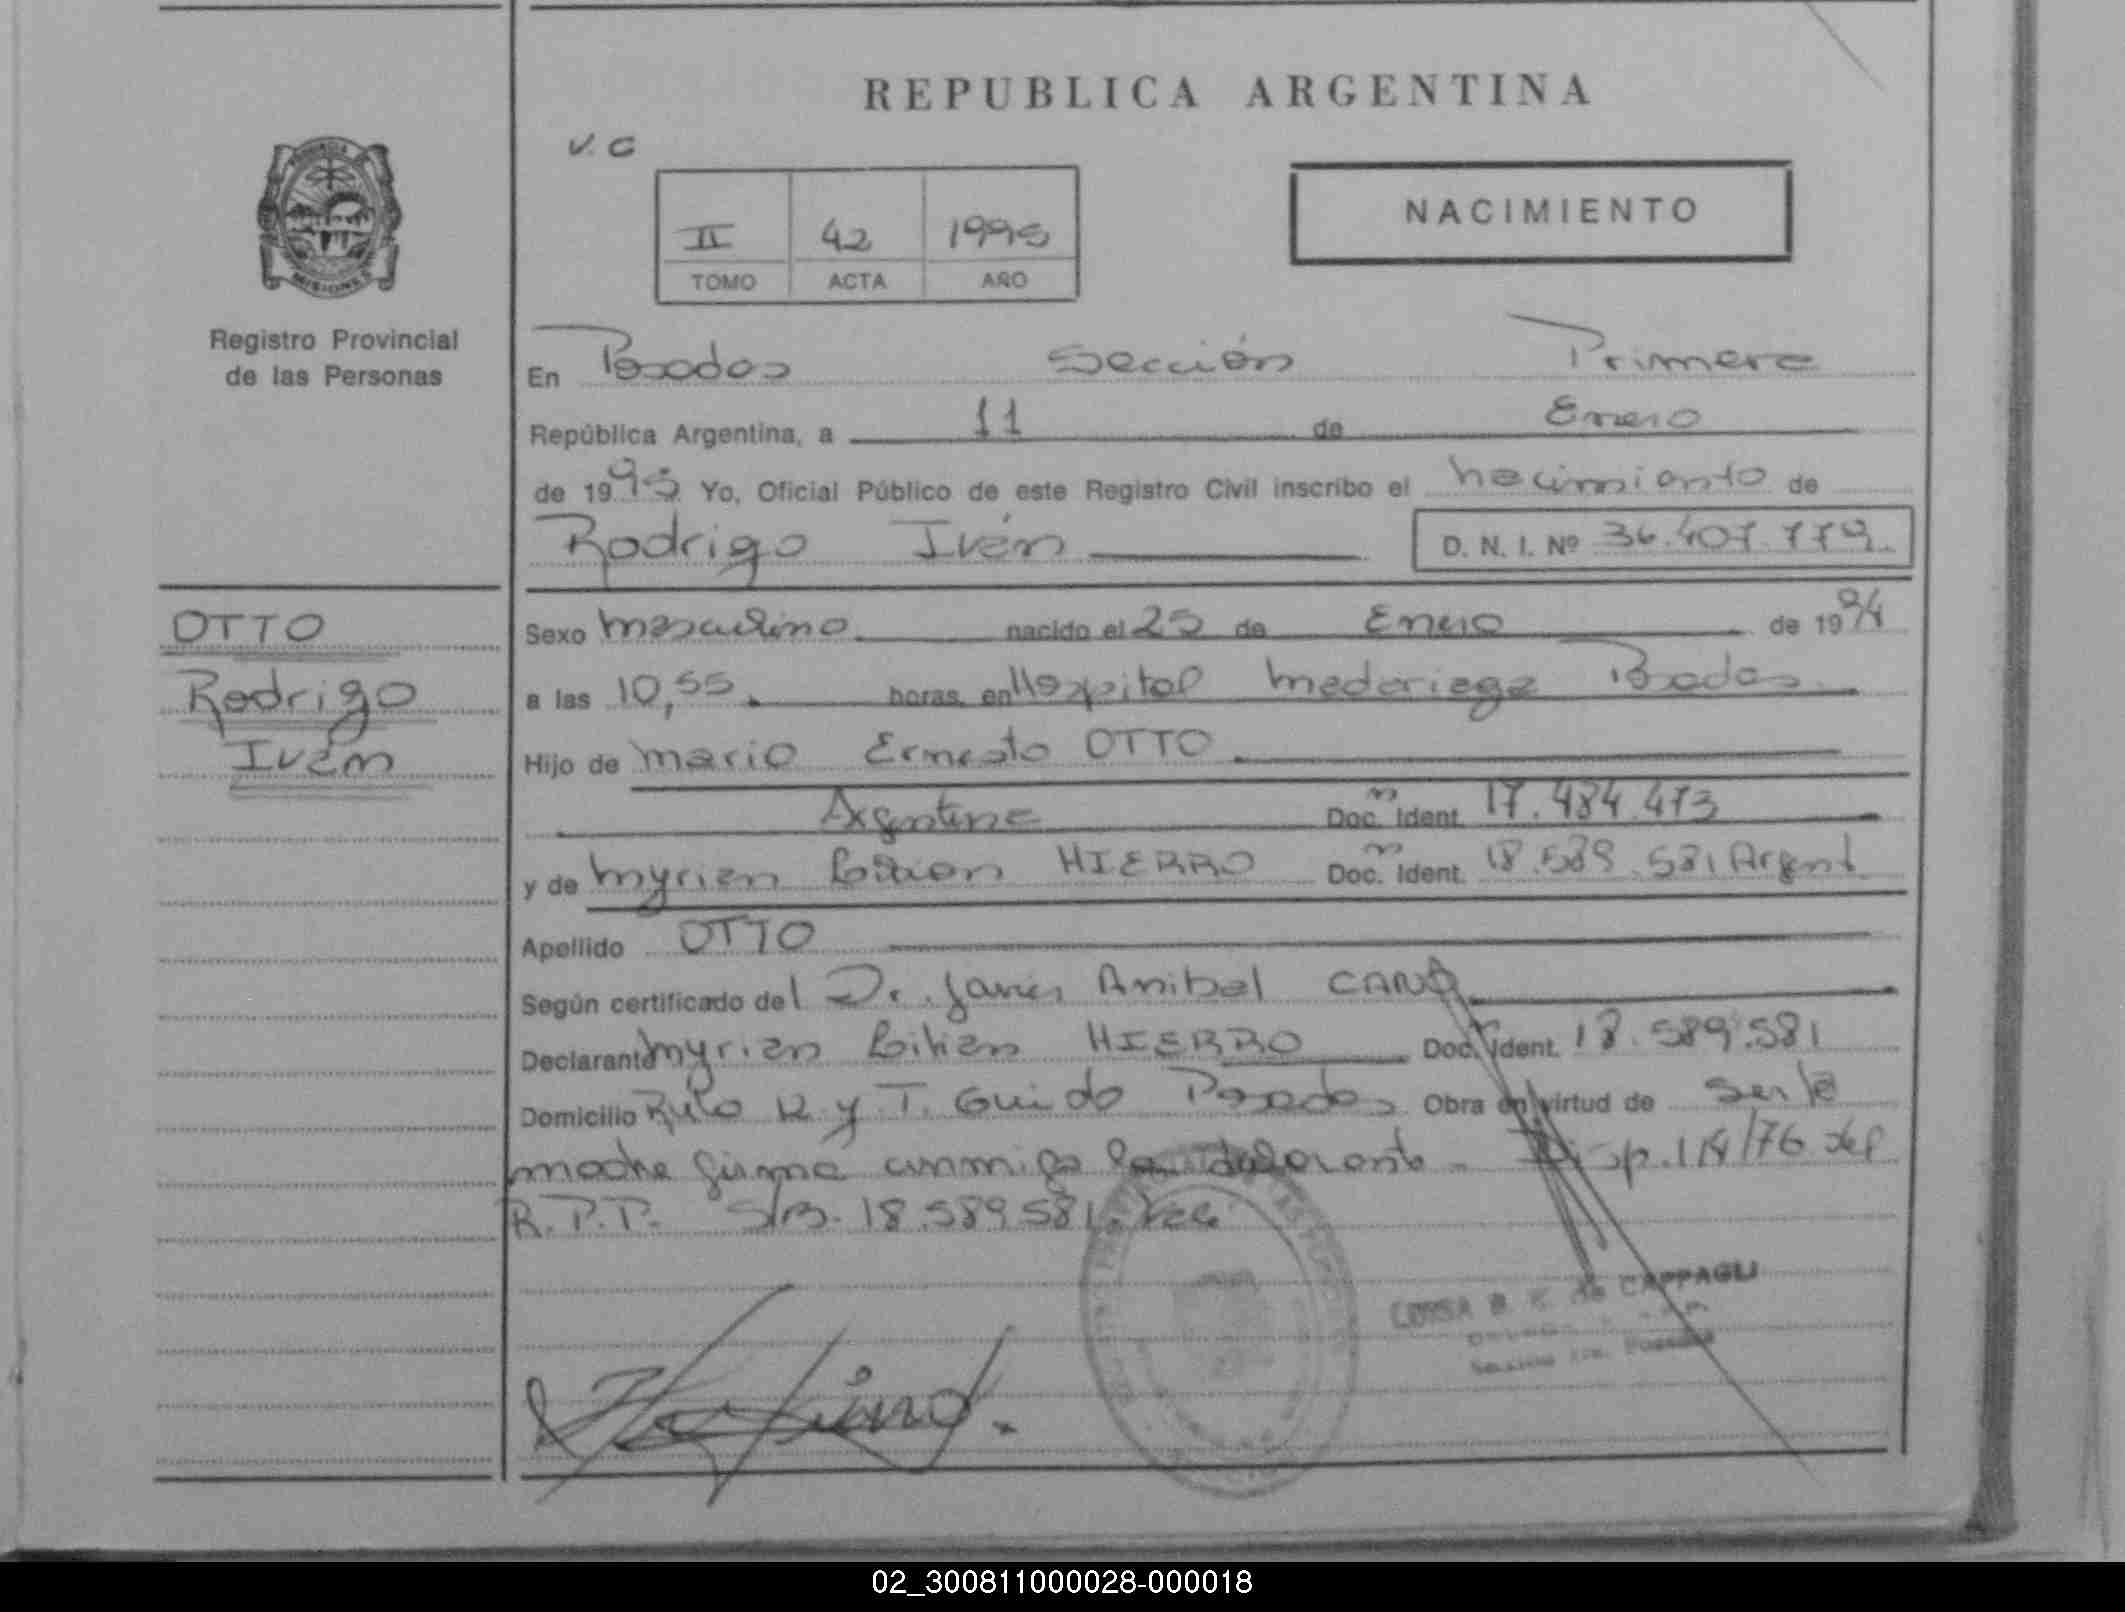 REPUBLICA ARGENTINA
V. C
NACIMIENTO
II 42 1995
TOMO ACTA AÑO
PROVINCIA DE
MISIONES
Registro Provincial
de las Personas
En Posadas Sección Primera
República Argentina, a 11 de Enero
de 1995 Yo, Oficial Público de este Registro Civil inscribo el nacimiento de
Rodrigo Iván D. N. I. Nº 36.407.779.
OTTO
Rodrigo
Iván
Sexo masculino nacido el 25 de Enero de 1994
a las 10,55. horas, en Hospital Madariaga Posadas
Hijo de Mario Ernesto OTTO
Argentina Doc. Ident. 17.484.473
y de Myrian Lilian HIERRO Doc. Ident. 18.589.581 Argent
Apellido OTTO
Según certificado del Dr. Javier Anibal CANO
Declarante Myrian Lilian HIERRO Doc. Ident. 18.589.581
Domicilio Rulo 12 y T. Guido Posadas Obra en virtud de ser la
madre firma conmigo la declarante - Disp. 114/76 del
R.P.P. S/B. 18.589.581.
de CAPPAGLI
02_300811000028-000018